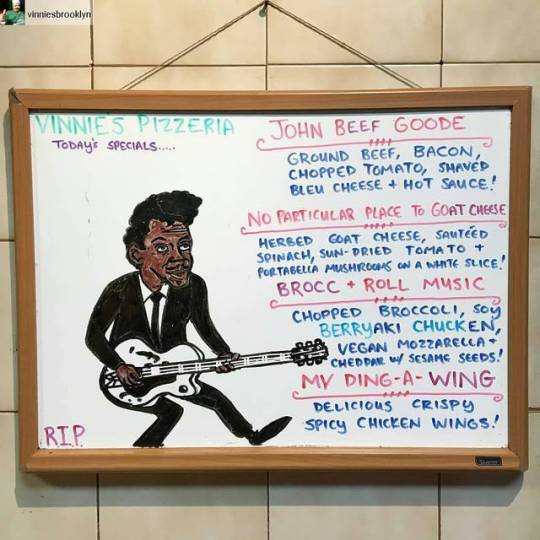 vinniesbrooklyn
VINNIES PIZZERIA
TODAY'S SPECIALS.....
JOHN BEEF GOODE
GROUND BEEF, BACON,
CHOPPED TOMATO, SHAVED
BLEU CHEESE + HOT SAUCE!
NO PARTICULAR PLACE TO GOAT CHEESE
HERBED GOAT CHEESE, SAUTÉED
SPINACH, SUN-DRIED TOMATO +
PORTABELLA MUSHROOMS ON A WHITE SLICE!
BROCC + ROLL MUSIC
CHOPPED BROCCOLI, SOY
BERRYAKI CHUCKEN,
VEGAN MOZZARELLA +
CHEDDAR W/ SESAME SEEDS!
MY DING-A-WING
DELICIOUS CRISPY
SPICY CHICKEN WINGS!
R.I.P.